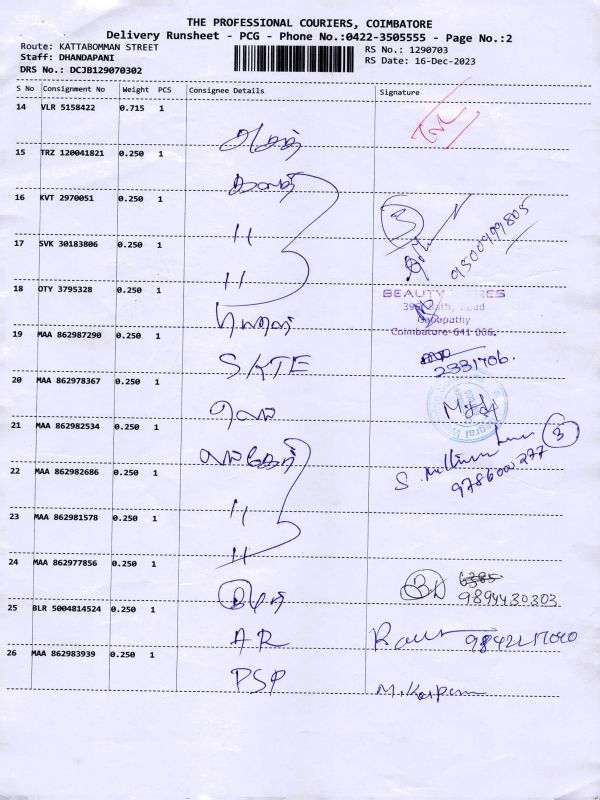 THE PROFESSIONAL COURIERS, COIMBATORE
Delivery Runsheet - PCG - Phone No.:0422-3505555 - Page No.:2
Route: KATTABOMMAN STREET
RS No.: 1290703
Staff: DHANDAPANI
RS Date: 16-Dec-2023
DRS No.: DCJB129070302
S No Consignment No Weight PCS Consignee Details Signature
14 VLR 5158422 0.715 1
15 TRZ 120041821 0.250 1
16 KVT 2970051 0.250 1
3
17 SVK 30183806 0.250 1 11
9500499805
18 OTY 3795328 0.250 1 11
BEAUTY
Road
Coimbatore-641 006.
19 MAA 862987290 0.250 1
SKTE
2331706.
20 MAA 862978367 0.250 1
21 MAA 862982534 0.250 1
3
22 MAA 862982686 0.250 1
S.
9786000277
23 MAA 862981578 0.250 1 11
24 MAA 862977856 0.250 1 11
9894430303
25 BLR 5004814524 0.250 1
AR
26 MAA 862983939 0.250 1
PSP